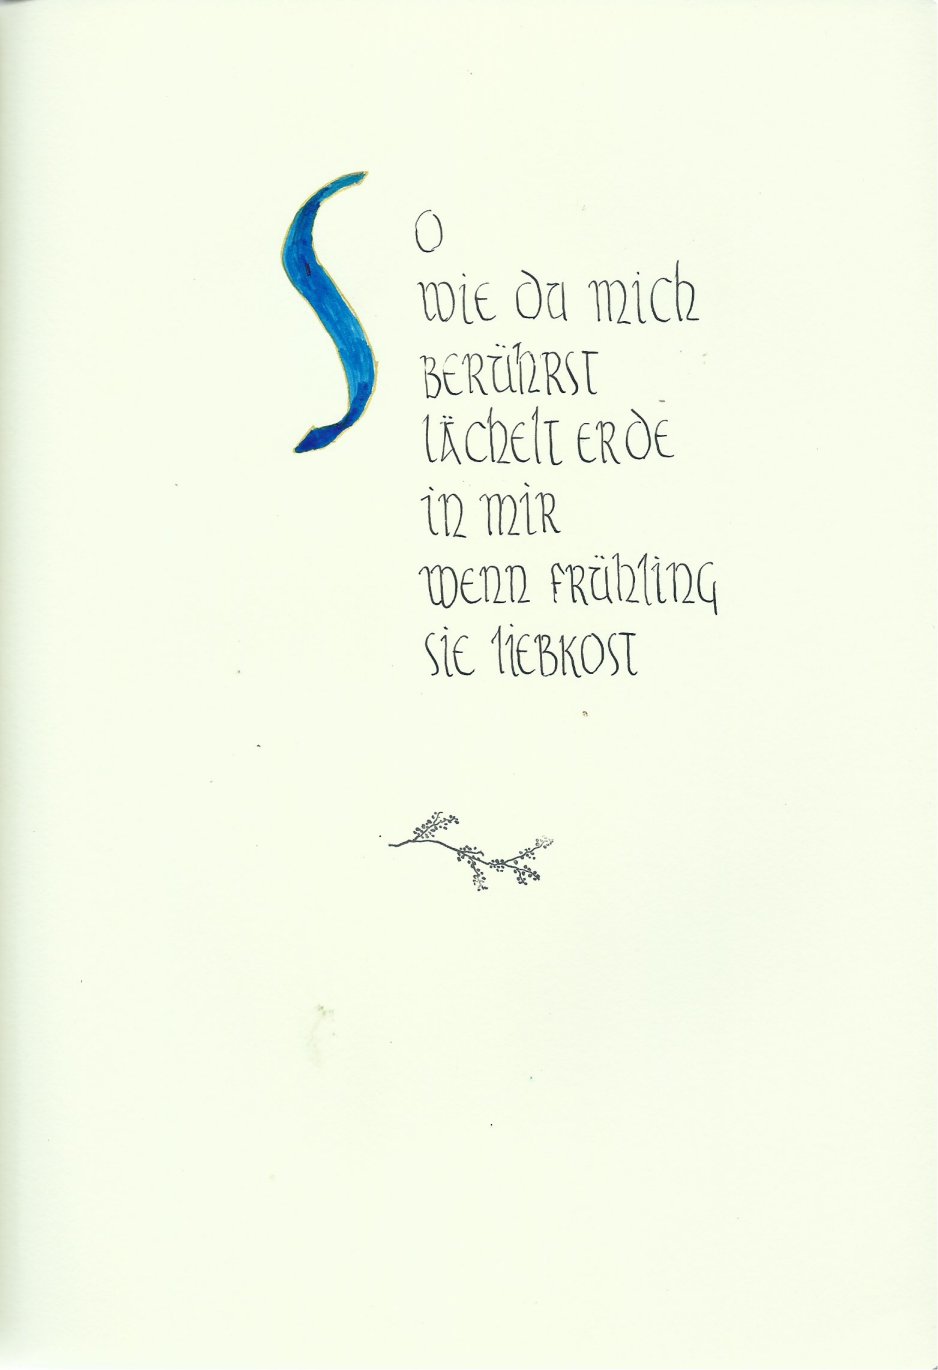 So
wie du mich
berührst
lächelt Erde
in mir
wenn Frühling
sie liebkost